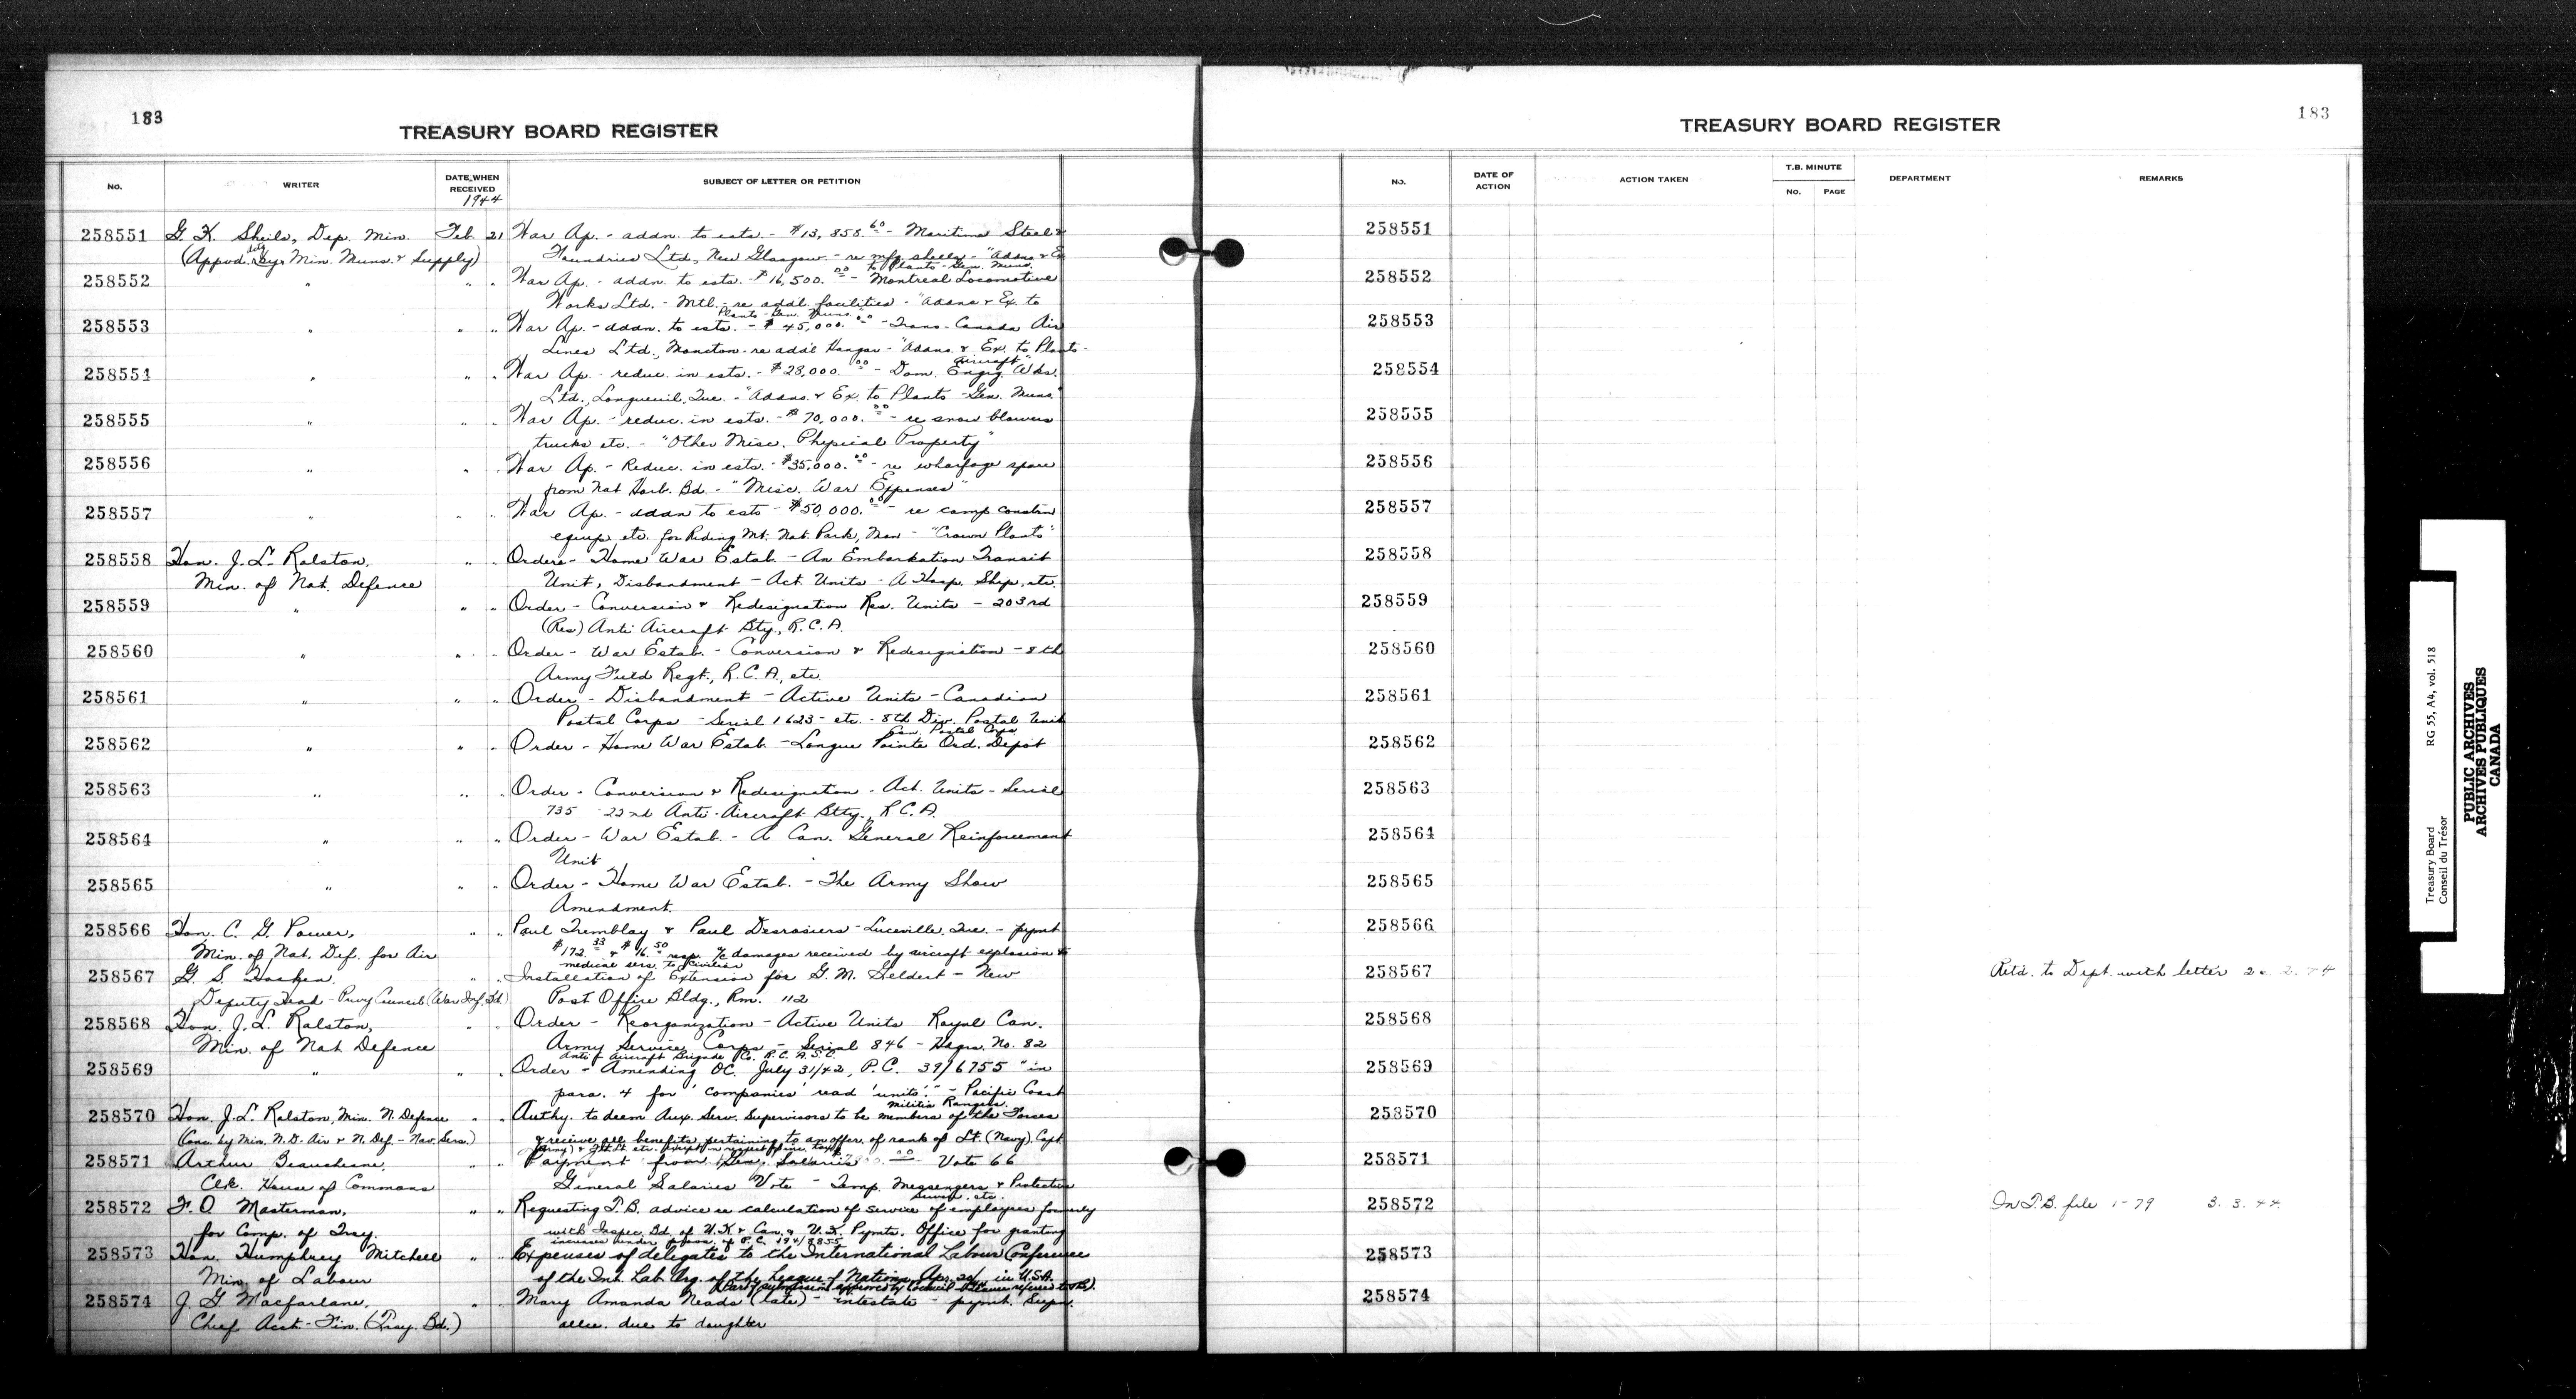 183
TREASURY BOARD REGISTER
No. WRITER DATE WHEN RECEIVED 1944 SUBJECT OF LETTER OR PETITION
258551 G. K. Sheils, Dep. Min. Feb. 21 War Ap. - addn. to ests. - $13,858.60 - Maritime Steel &
(Appvd. by actg Min. Muns. & Supply) Foundries Ltd., New Glasgow - re mfg. shells - "Addns & Ex
to Plants - Gen. Muns.
258552 " " " War Ap. - addn. to ests. - $16,500.00 - Montreal Locomotive
Works Ltd. - Mtl. - re addl. facilities - "Addns & Ex. to
Plants - Gen. Muns."
258553 " " " War Ap. - addn. to ests. - $45,000.00 - Trans-Canada Air
Lines Ltd., Moncton - re add'l Hangar - "Addns. & Ex. to Plants -
Aircraft"
258554 " " " War Ap. - reduc. in ests. - $28,000.00 - Dom. Engrg. Wks.
Ltd., Longueuil, Que. - "Addns. & Ex. to Plants - Gen. Muns."
258555 " " " War Ap. - reduc. in ests. - $70,000.00 - re snow blowers
trucks etc. - "Other Misc. Physical Property"
258556 " " " War Ap. - Reduc. in ests. - $35,000.00 - re wharfage space
from Nat Harb. Bd. - "Misc. War Expenses"
258557 " " " War Ap. - addn to ests - $50,000.00 - re camp constrn
equip. etc. for Riding Mt. Nat. Park, Man - "Crown Plants"
258558 Hon. J. L. Ralston, " " Orders - Home War Estab. - An Embarkation Transit
Min. of Nat. Defence Unit, Disbandment - Act. Units - A Hosp. Ship, etc.
258559 " " " Order - Conversion & Redesignation Res. Units - 203rd
(Res) Anti Aircraft Bty., R.C.A.
258560 " " " Order - War Estab. - Conversion & Redesignation - 8th
Army Field Regt., R.C.A., etc.
258561 " " " Order - Disbandment - Active Units - Canadian
Postal Corps - Serial 1623 - etc. - 8th Div. Postal Unit
Can. Postal Corps
258562 " " " Order - Home War Estab. - Longue Pointe Ord. Depot
258563 " " " Order - Conversion & Redesignation - Act. Units - Serial
735 22nd Anti-Aircraft Btty., R.C.A.
258564 " " " Order - War Estab. - A Can. General Reinforcement
Unit
258565 " " " Order - Home War Estab. - The Army Show
Amendment.
258566 Hon. C. G. Power, " " Paul Tremblay & Paul Desrosiers - Luceville, Que. - paymt
Min. of Nat. Def. for Air $172.33 & $16.50 resp. damages received by aircraft explosion &
medical serv. to civilian
258567 G. S. " " Installation of Extension for G. M. Geldert - New
Deputy Head - Privy Council (War Inf. Bd.) Post Office Bldg., Rm. 112
258568 Hon. J. L. Ralston, " " Order - Reorganization - Active Units Royal Can.
Min. of Nat. Defence Army Service Corps - Serial 846 - Hdqrs. No. 82
Anti Aircraft Brigade Co. R.C.A.S.C.
258569 " " " Order - Amending OC. July 31/42, P.C. 39/6755 "in
para. 4 for 'companies' read 'units'." - Pacific Coast
Militia Rangers.
258570 Hon. J. L. Ralston, Min. N. Defence " " Authy. to deem Aux. Serv. Supervisors to be members of the Forces
(Conc. by Min. N.D. Air & N. Def. - Nav. Serv.) & receive all benefits pertaining to an offer. of rank of Lt. (Navy), Capt.
(Army) & Flt. Lt. etc. except in respect of inc. tax
258571 Arthur Beauchesne, " " Payment from Gen. Salaries Vote 66
Clk. House of Commons General Salaries Vote - Temp. Messengers & Protective
Service, etc.
258572 F. O. Masterman, " " Requesting T.B. advice re calculation of service of employees formerly
for Comp. of Tresy. with Inspec. Bd. of U.K. & Can. & U.K. Pymts. Office for granting
increases under provn. of P.C.
258573 Hon. Humphrey Mitchell " " Expenses of delegates to the International Labour Conference
Min. of Labour of the Int. Lab. Org. of the League of Nations, Apr. 20/44 in U.S.A.
258574 J. G. Macfarlane, " " Mary Amanda Neads (late) - intestate - paymt. Supn.
Chief Acct. - Fin. (Tresy. Bd.) allce. due to daughter
183
TREASURY BOARD REGISTER
No. DATE OF ACTION ACTION TAKEN T.B. MINUTE NO. PAGE DEPARTMENT REMARKS
258551
258552
258553
258554
258555
258556
258557
258558
258559
258560
258561
258562
258563
258564
258565
258566
258567 Retd. to Dept. with letter
258568
258569
258570
258571
258572 In T.B. file 1-79 3. 3. 44
258573
258574
Treasury Board RG 55, A4, vol. 518
Conseil du Trésor
PUBLIC ARCHIVES
ARCHIVES PUBLIQUES
CANADA